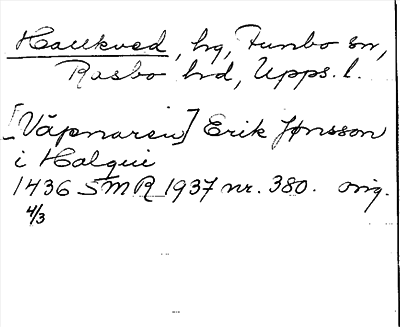 Haukved, hg, Funbo sn,
Rasbo hd, Upps. l.
[Väpnaren] Erik Jønsson
i Halqui
1436 SMR 1937 nr. 380. orig.
4/3